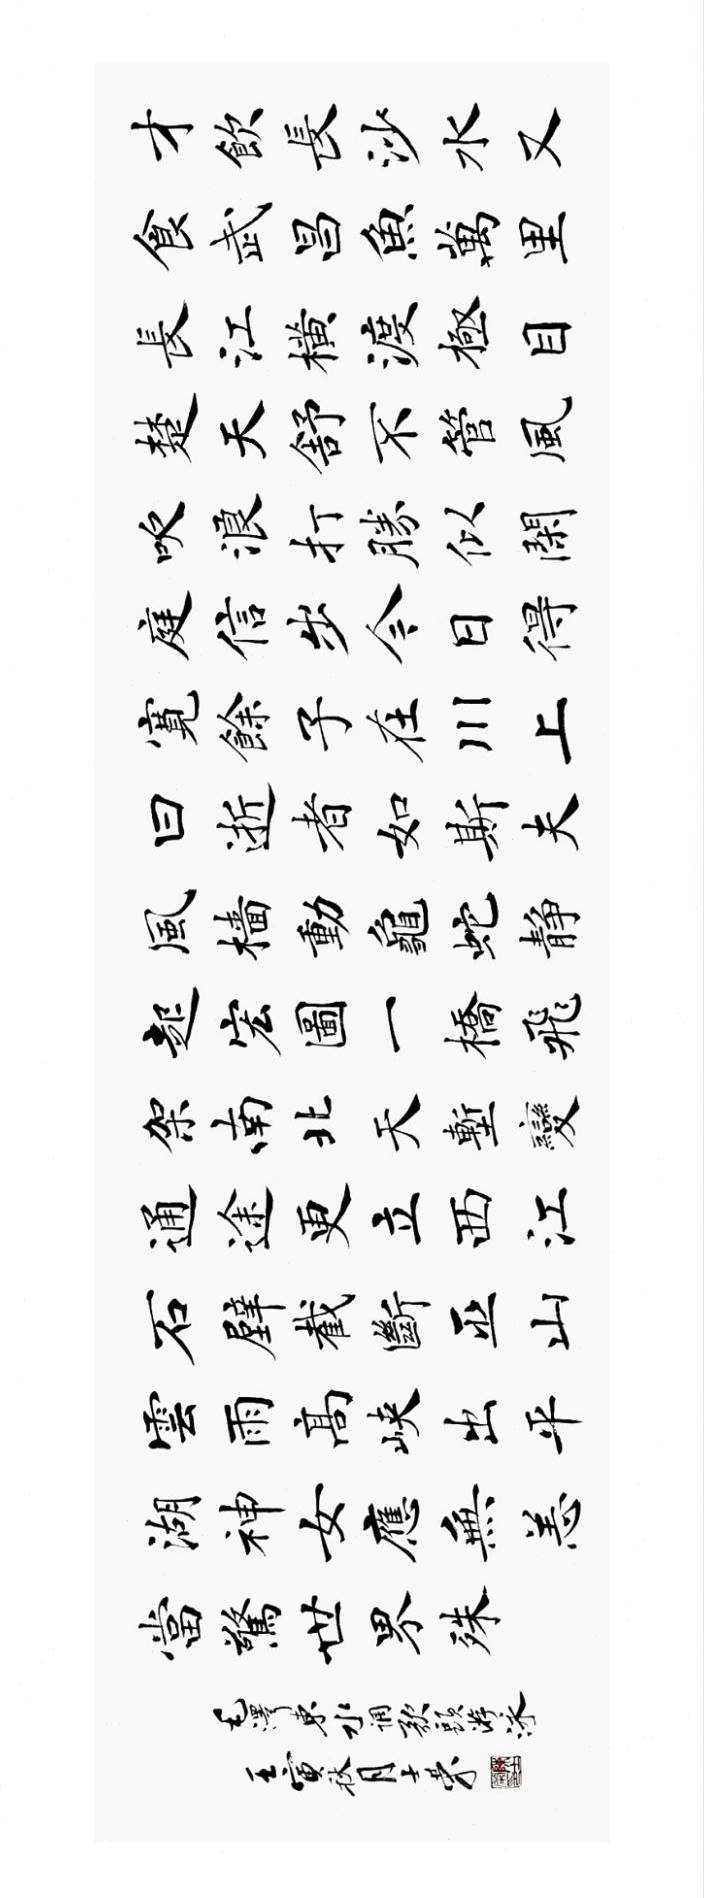 才飲長沙水又
食武昌魚萬里
長江橫渡極目
楚天舒不管風
吹浪打勝似閑
庭信步今日得
寬餘子在川上
曰逝者如斯夫
風檣動龜蛇靜
起宏圖一橋飛
架南北天塹變
通途更立西江
石壁截斷巫山
雲雨高峽出平
湖神女應無恙
當驚世界殊
毛澤東水調歌頭游泳
壬寅秋月士